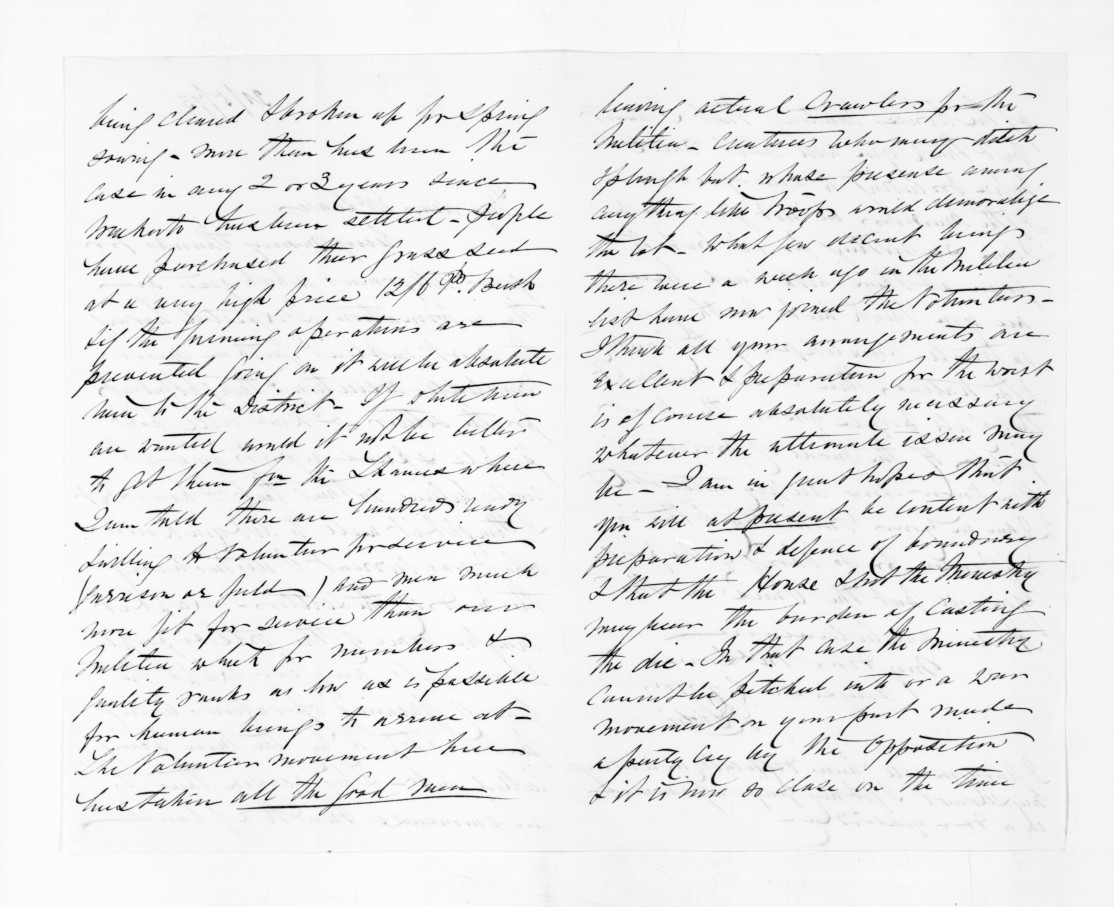 being cleared & broken up for Spring
sowing - more than has been the
case in any 2 or 3 years since
has been settled - People
have purchased their grass seed
at a very high price 12/6 Pr. Bush
& if the burning operations are
prevented going on it will be absolute
ruin to the District - If able men
are wanted would it not be better
to get them fm the Thames where
I am told there are hundreds ready
& willing to volunteer for service
(garrison or field) and men much
more fit for service than our
Militia which for numbers &
quality ranks as low as is possible
for human beings to arrive at -
The Volunteer movement here
has taken all the good men
leaving actual Crawlers for the
Militia - creatures who may ditch
or plough but whose presense among
anything like Troops would demoralize
the lot - What few decent beings
there were a week ago in the Militia
list have now joined the Volunteers -
I think all your arrangements are
Excellent & preparation for the worst
is of course absolutely necessary
whatever the ultimate issue may
be - I am in great hopes that
you will at present be content with
preparation & defence of boundary
& that the House & not the Ministry
may bear the burden of Casting
the die - In that case the Ministry
cannot be pitched into or a war
movement on your part made
a party cry by the Opposition
& it is now so close on the time